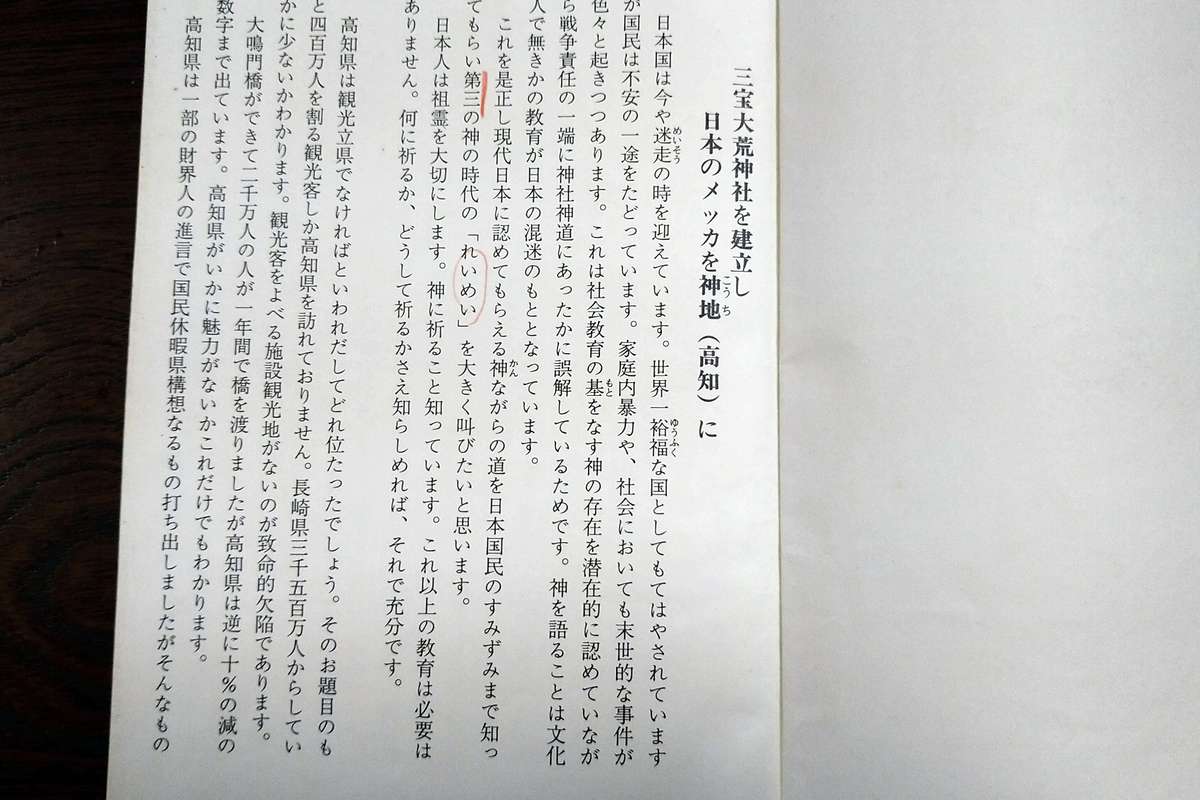 三宝大荒神社を建立し
日本のメッカを神地（高知）に
日本国は今や迷走の時を迎えています。世界一裕福な国としてもてはやされています
が国民は不安の一途をたどっています。家庭内暴力や、社会においても末世的な事件が
色々と起きつつあります。これは社会教育の基をなす神の存在を潜在的に認めていなが
ら戦争責任の一端に神社神道にあったかに誤解しているためです。神を語ることは文化
人で無きかの教育が日本の混迷のもととなっています。
これを是正し現代日本に認めてもらえる神ながらの道を日本国民のすみずみまで知っ
てもらい第三の神の時代の「れいめい」を大きく叫びたいと思います。
日本人は祖霊を大切にします。神に祈ること知っています。これ以上の教育は必要は
ありません。何に祈るか、どうして祈るかさえ知らしめれば、それで充分です。
高知県は観光立県でなければといわれだしてどれ位たったでしょう。そのお題目のも
と四百万人を割る観光客しか高知県を訪れておりません。長崎県三千五百万人からしてい
かに少ないかわかります。観光客をよべる施設観光地がないのが致命的欠陥であります。
大鳴門橋ができて二千万人の人が一年間で橋を渡りましたが高知県は逆に十%の減の
数字まで出ています。高知県がいかに魅力がないかこれだけでもわかります。
高知県は一部の財界人の進言で国民休暇県構想なるもの打ち出しましたがそんなもの